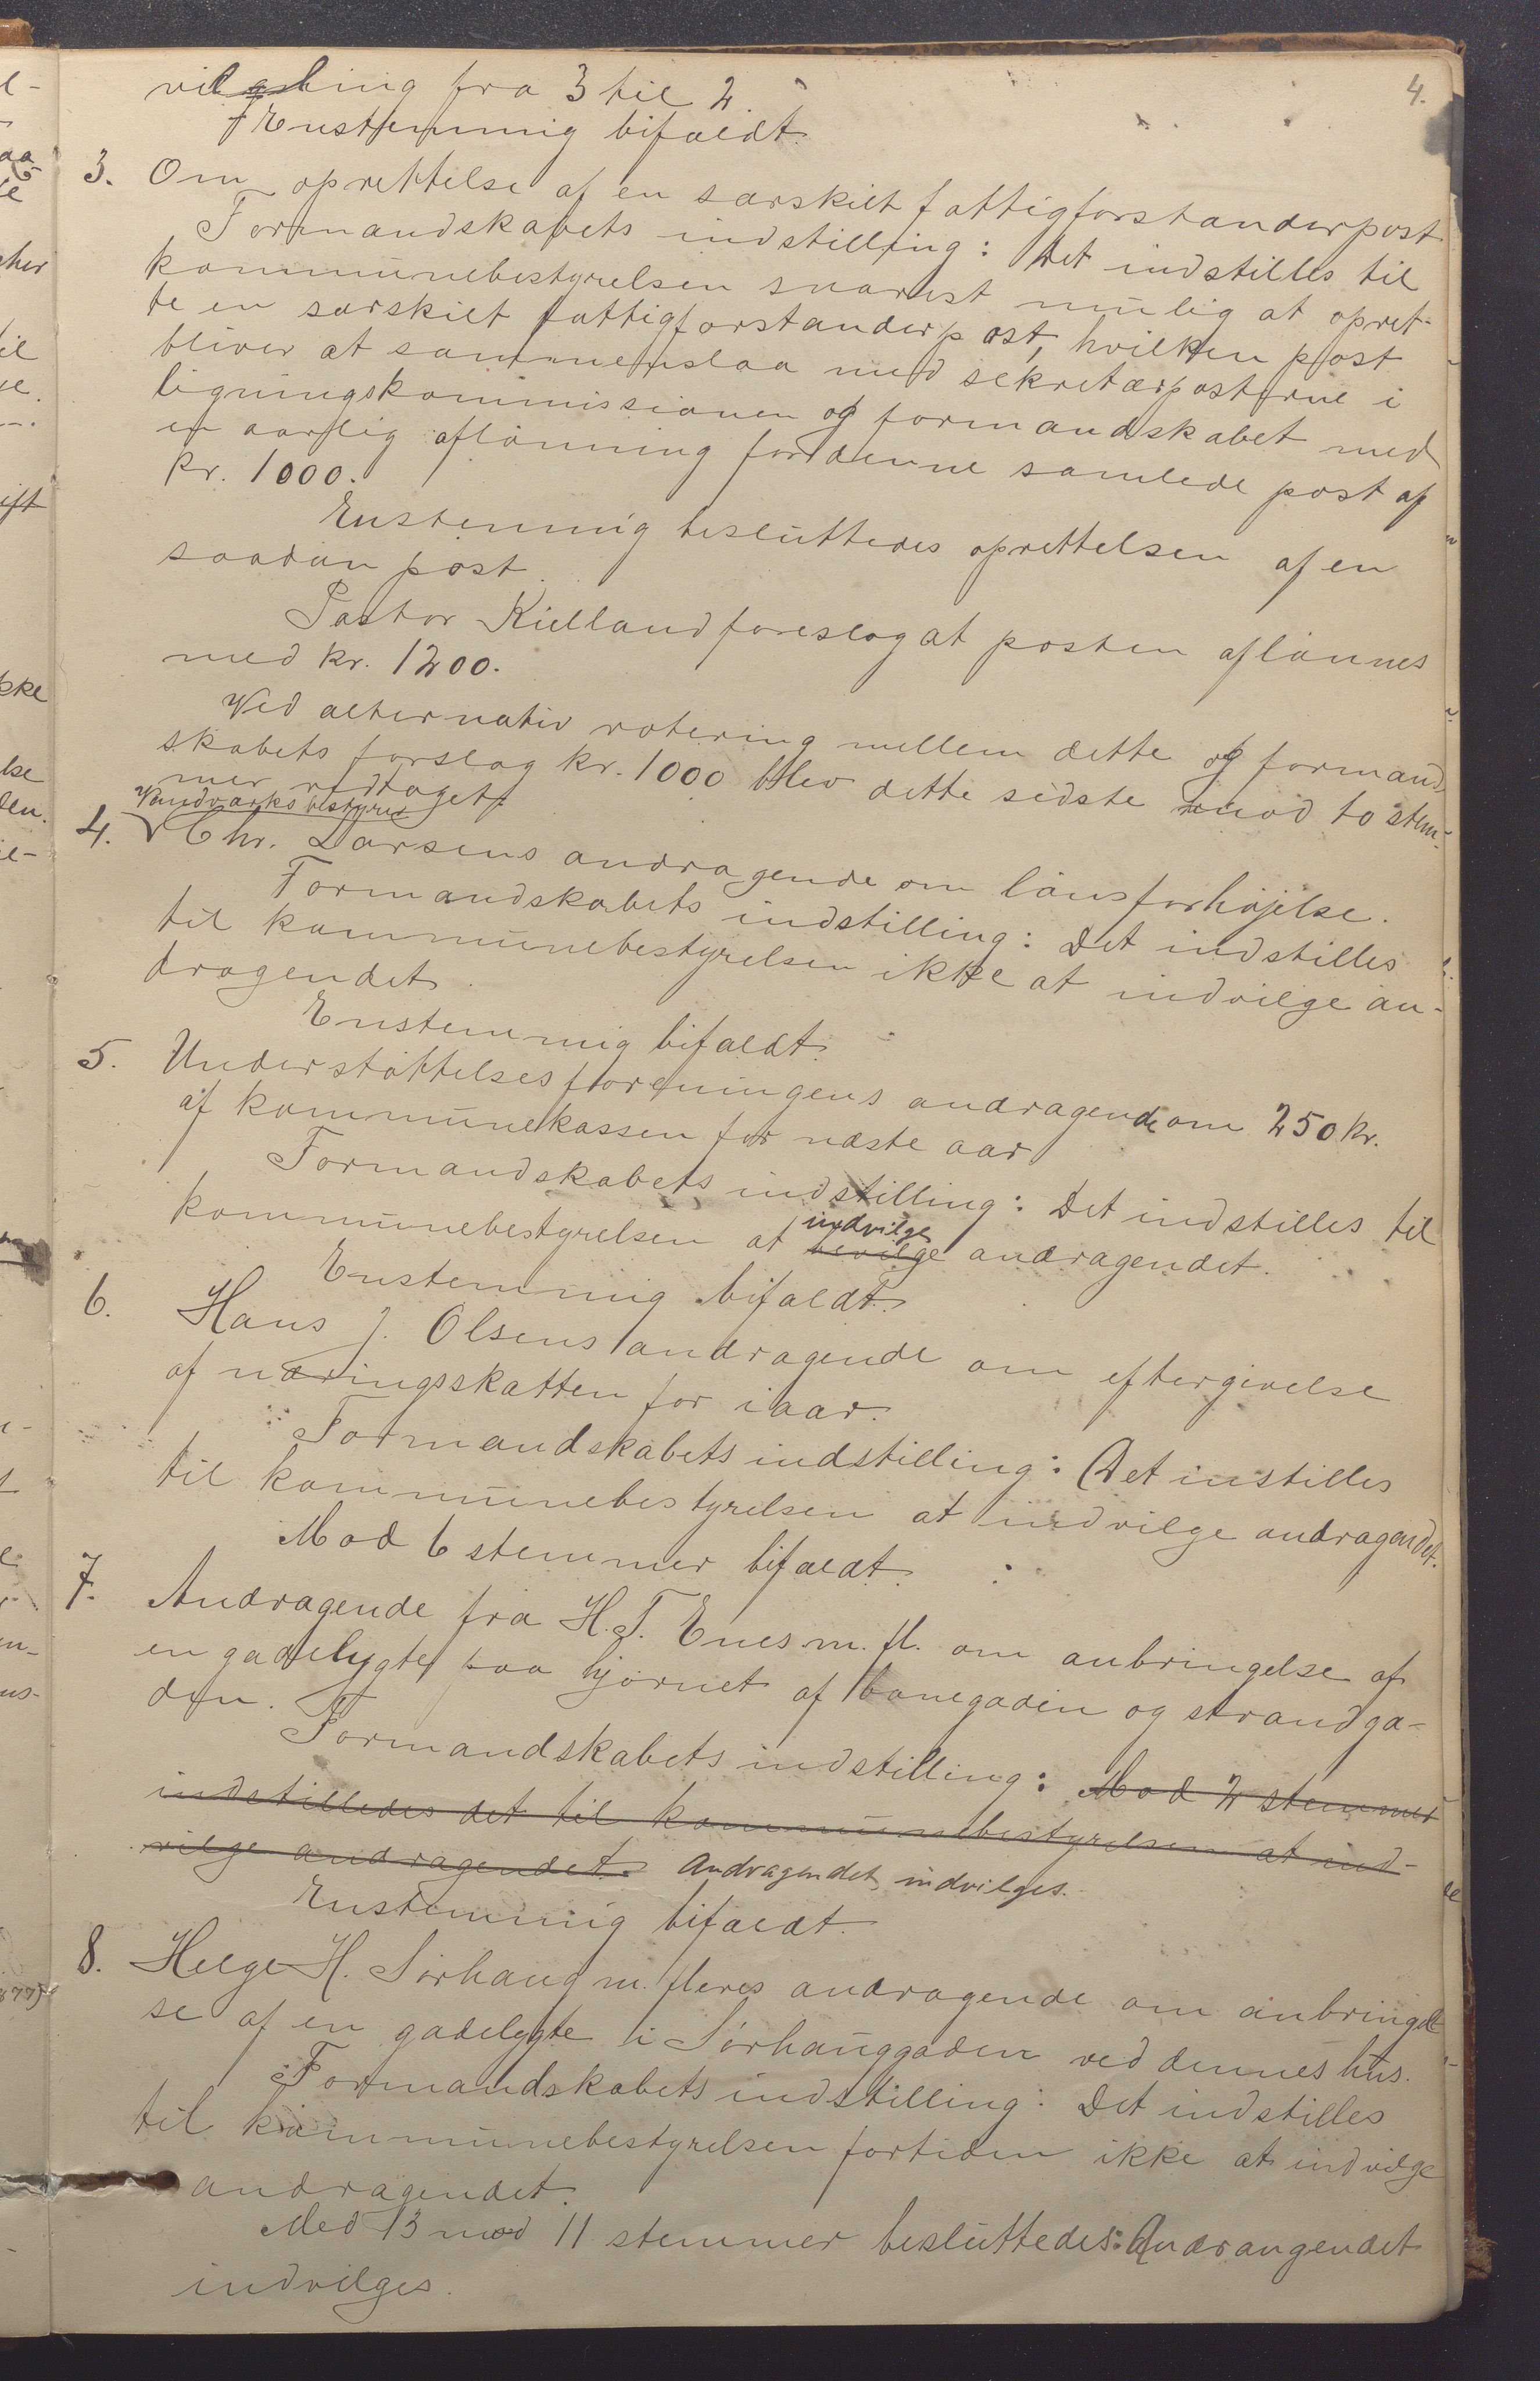 4.
fra 3 til 2.
Enstemmig bifaldt.
3. Om oprettelse af en særskilt fattigforstanderpost
Formandskabets indstilling: Det indstilles til
kommunebestyrelsen snarest mulig at opret-
te en særskilt fattigforstanderpost, hvilken post
bliver at sammenslaa med sekretærposterne i
ligningskommissionen og formandskabet med
en aarlig aflønning for denne samlede post af
kr. 1000.
Enstemmig besluttedes oprettelsen af en
saadan post.
Pastor Kielland foreslog at posten aflønnes
med kr. 1200.
Ved alternativ votering mellem dette og formand-
skabets forslag kr. 1000 blev dette sidste mod to stem-
mer vedtaget.
Vandværksbestyrer
4. Chr. Larsens andragende om lønsforhøjelse.
Formandskabets indstilling: Det indstilles
til kommunebestyrelsen ikke at indvilge an-
dragendet.
Enstemmig bifaldt.
5. Understøttelsesforeningens andragende om 250 kr.
af kommunekassen for næste aar
Formandskabets indstilling: Det indstilles til
indvilge
kommunebestyrelsen at bevilge andragendet.
Enstemmig bifaldt.
6. Hans J. Olsens andragende om eftergivelse
af næringsskatten for iaar.
Formandskabets indstilling: Det instilles
til kommunebestyrelsen at indvilge andragendet.
Mod 6 stemmer bifaldt.
7. Andragende fra H. T. Enes m. fl. om anbringelse af
en gadelygte paa hjørnet af banegaden og strandga-
den.
Formandskabets indstilling: Mod 2 stemmer
indstilledes det til kommunebestyrelsen at ind-
vilge andragendet. Andragendet indvilges.
Enstemmig bifaldt.
8. Helge H. Sørhaug m. fleres andragende om anbringel-
se af en gadelygte i Sørhauggaden ved dennes hus.
Formandskabets indstilling: Det indstilles
til kommunebestyrelsen fortiden ikke at indvilge
andragendet.
Med 13 mod 11 stemmer besluttedes: Andrangendet
indvilges.